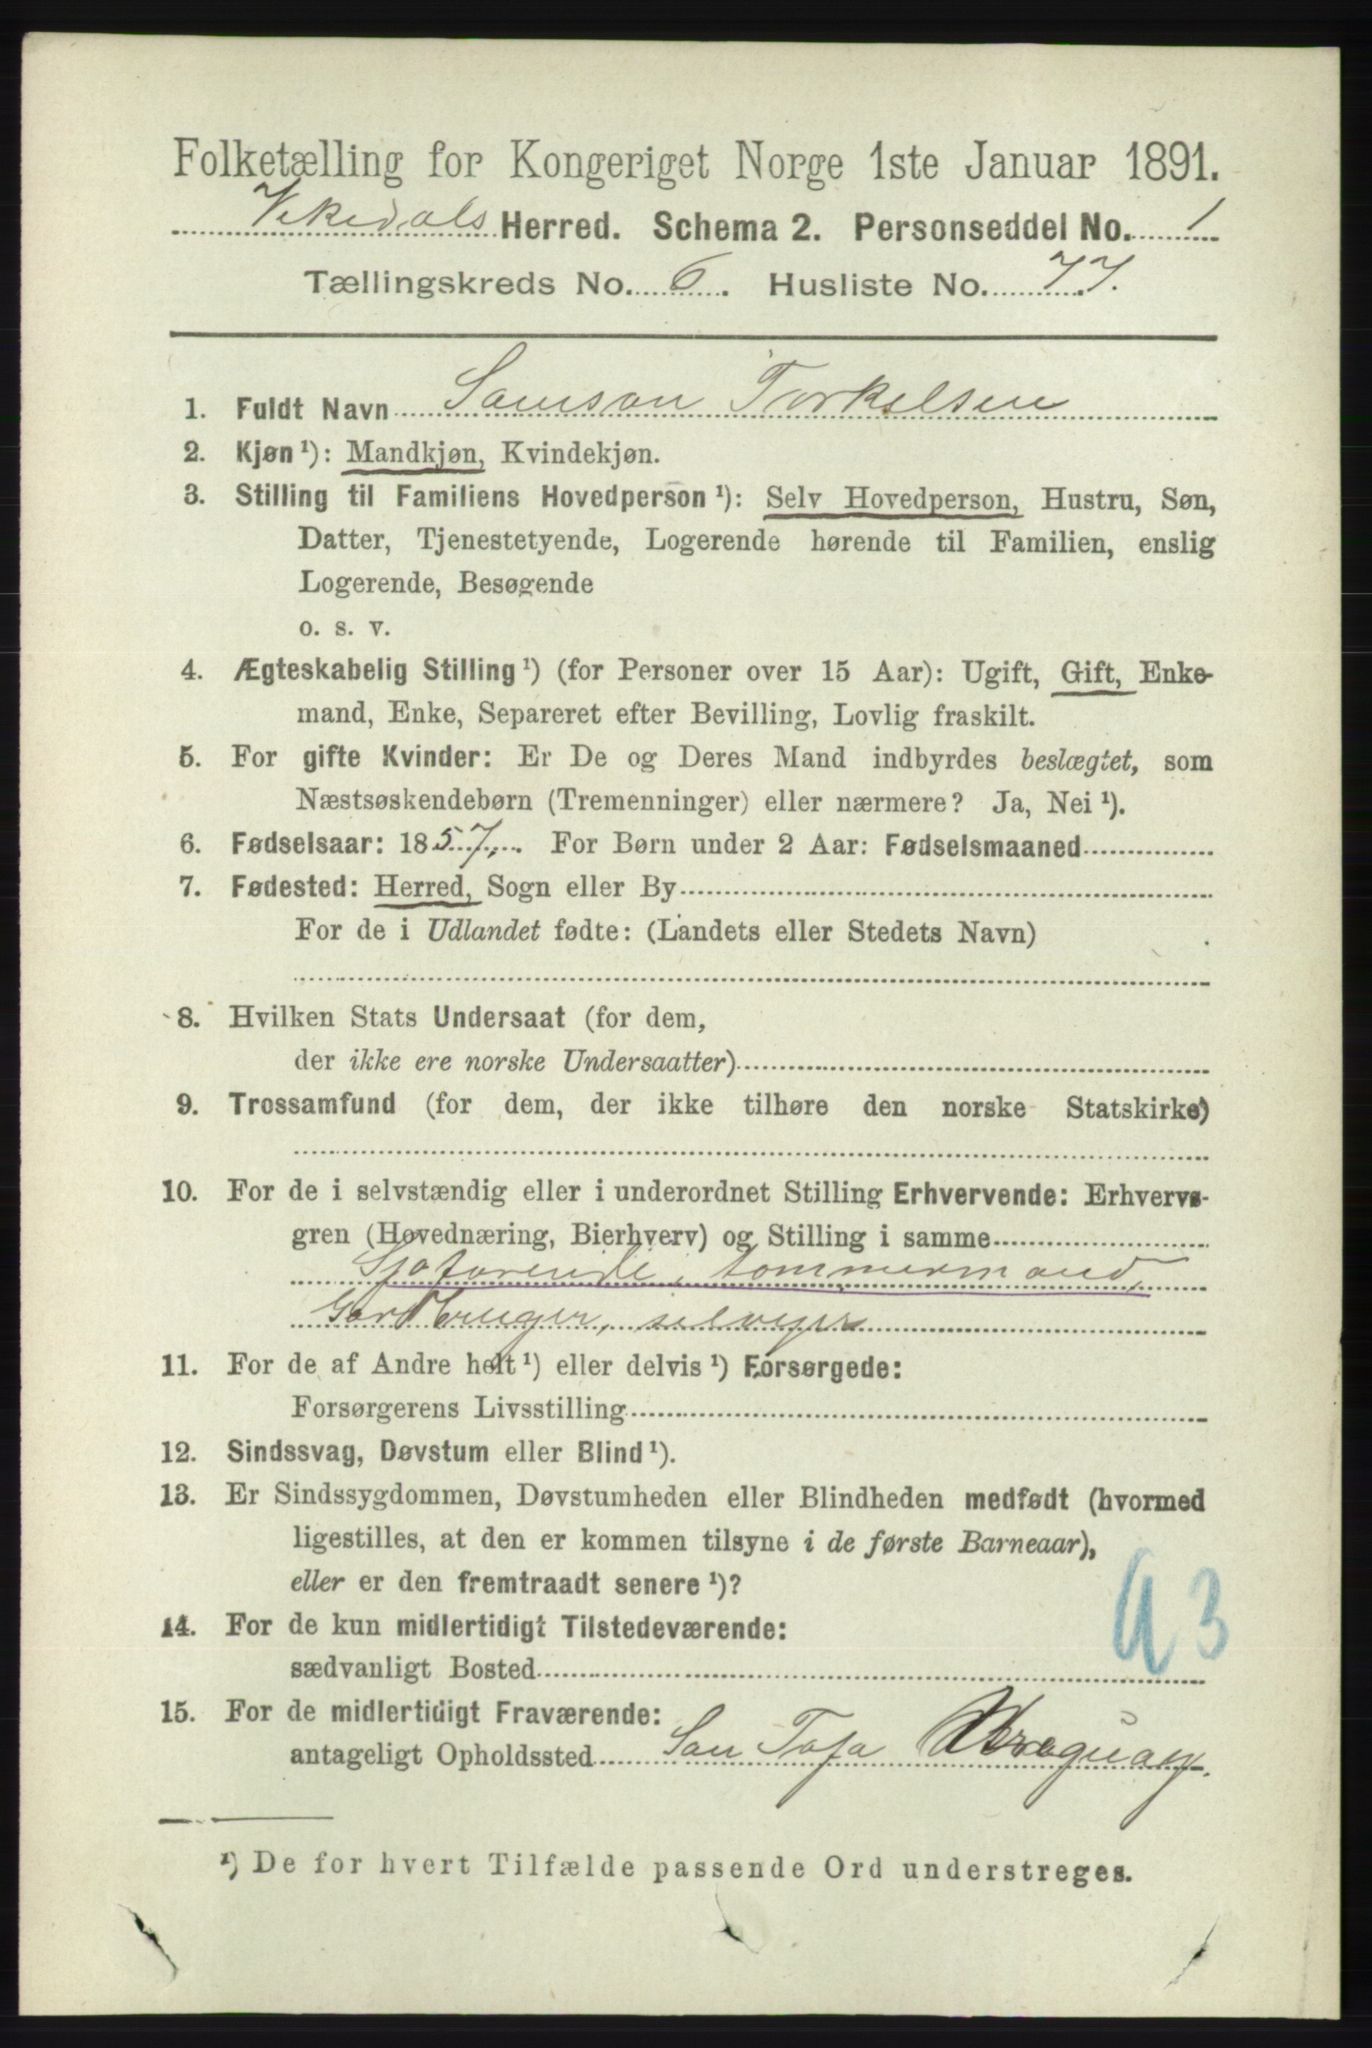 Folketælling for Kongeriget Norge 1ste Januar 1891.
Vikedals Herred. Schema 2. Personseddel No. 1
Tællingskreds No. 6. Husliste No. 77.
1. Fuldt Navn Samson Torkelsen
2. Kjøn ¹): Mandkjøn, Kvindekjøn.
3. Stilling til Familiens Hovedperson ¹): Selv Hovedperson, Hustru, Søn,
Datter, Tjenestetyende, Logerende hørende til Familien, enslig
Logerende, Besøgende
o. s. v.
4. Ægteskabelig Stilling ¹) (for Personer over 15 Aar): Ugift, Gift, Enke-
mand, Enke, Separeret efter Bevilling, Lovlig fraskilt.
5. For gifte Kvinder: Er De og Deres Mand indbyrdes beslægtet, som
Næstsøskendebørn (Tremenninger) eller nærmere? Ja, Nei ¹).
6. Fødselsaar: 1857. For Børn under 2 Aar: Fødselsmaaned
7. Fødested: Herred, Sogn eller By
For de i Udlandet fødte: (Landets eller Stedets Navn)
8. Hvilken Stats Undersaat (for dem,
der ikke ere norske Undersaatter)
9. Trossamfund (for dem, der ikke tilhøre den norske Statskirke)
10. For de i selvstændig eller i underordnet Stilling Erhvervende: Erhvervs-
gren (Hovednæring, Bierhverv) og Stilling i samme
Sjøfarende, tommermand,
Gardbruger, selveger
11. For de af Andre helt ¹) eller delvis ¹) Forsørgede:
Forsørgerens Livsstilling
12. Sindssvag, Døvstum eller Blind ¹).
13. Er Sindssygdommen, Døvstumheden eller Blindheden medfødt (hvormed
ligestilles, at den er kommen tilsyne i de første Barneaar),
eller er den fremtraadt senere ¹)?
14. For de kun midlertidigt Tilstedeværende:
sædvanligt Bosted
15. For de midlertidigt Fraværende:
antageligt Opholdssted San Tafa Uraguay.
¹) De for hvert Tilfælde passende Ord understreges.